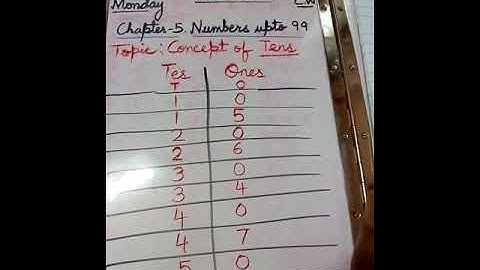 Monday C.W
Chapter-5. Numbers upto 99
Topic: Concept of Tens
Tes Ones
T O
1 0
1 5
2 0
2 6
3 0
3 4
4 0
4 7
5 0